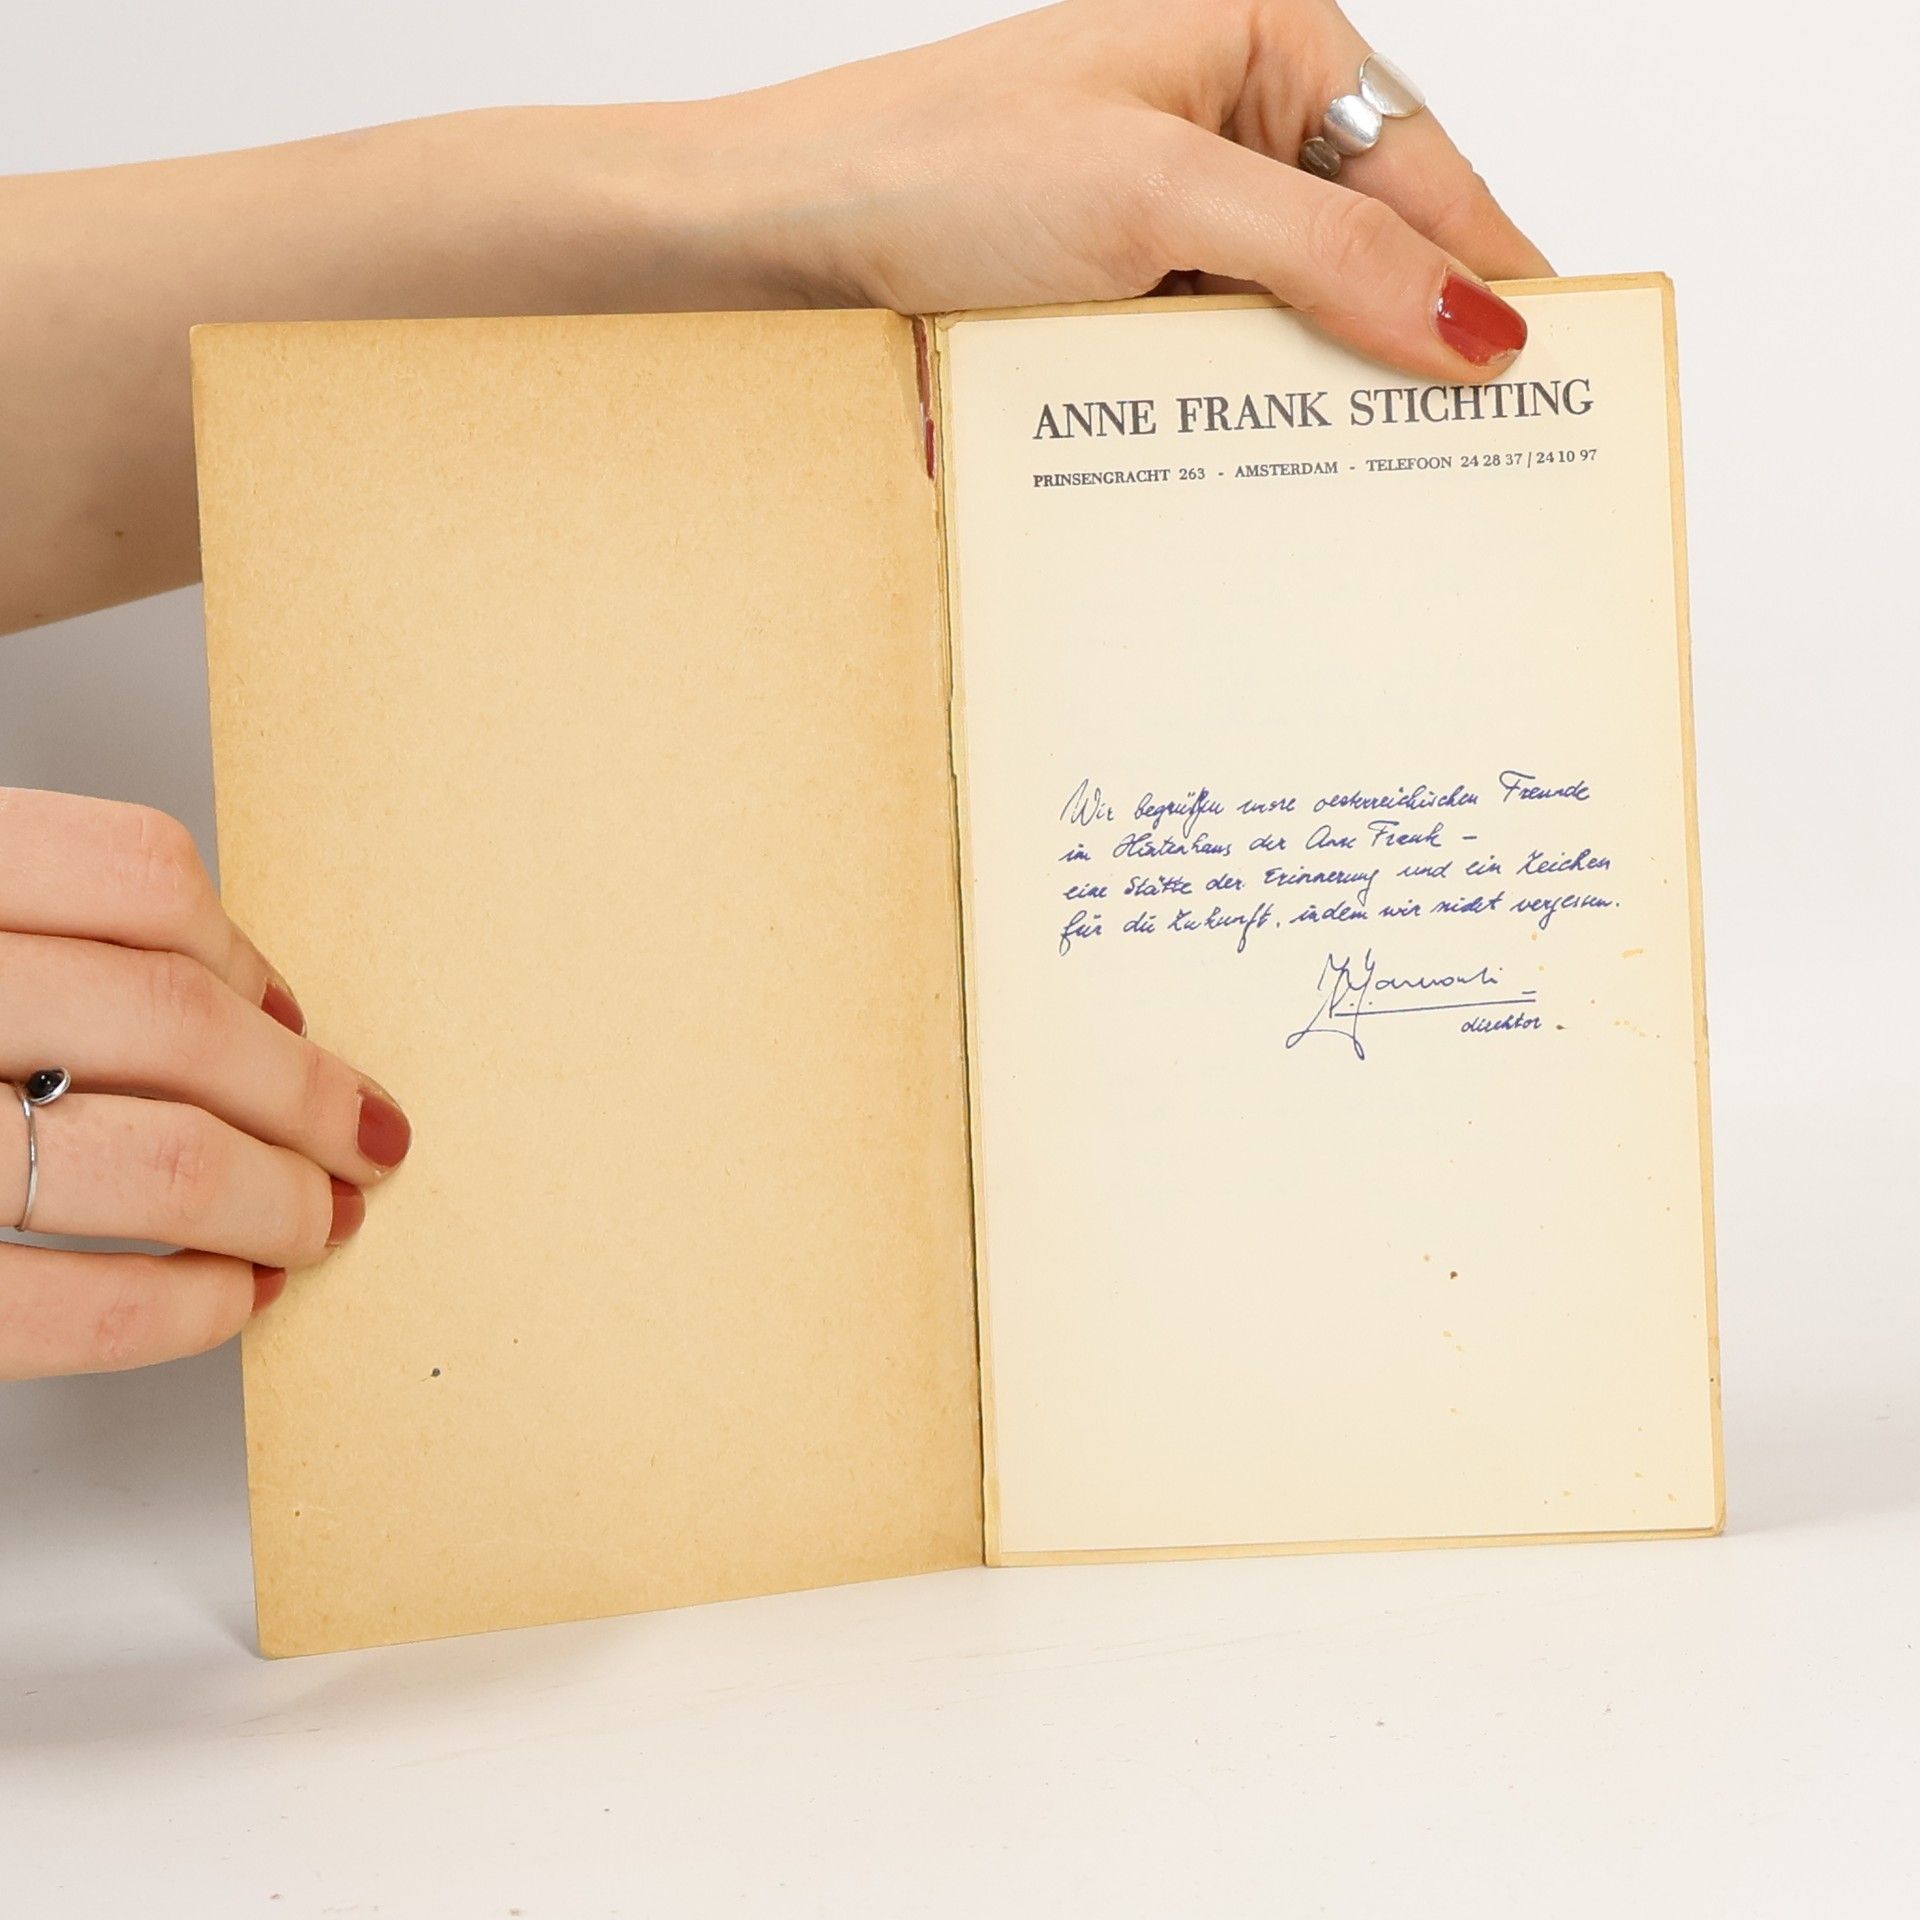 ANNE FRANK STICHTING
PRINSENGRACHT 263 - AMSTERDAM - TELEFOON 24 28 37 / 24 10 97
Wir begrüßen unsre oesterreichischen Freunde
im Hintenhaus der Anne Frank –
eine Stätte der Erinnerung und ein Zeichen
für die Zukunft, indem wir nicht vergessen.
direktor.